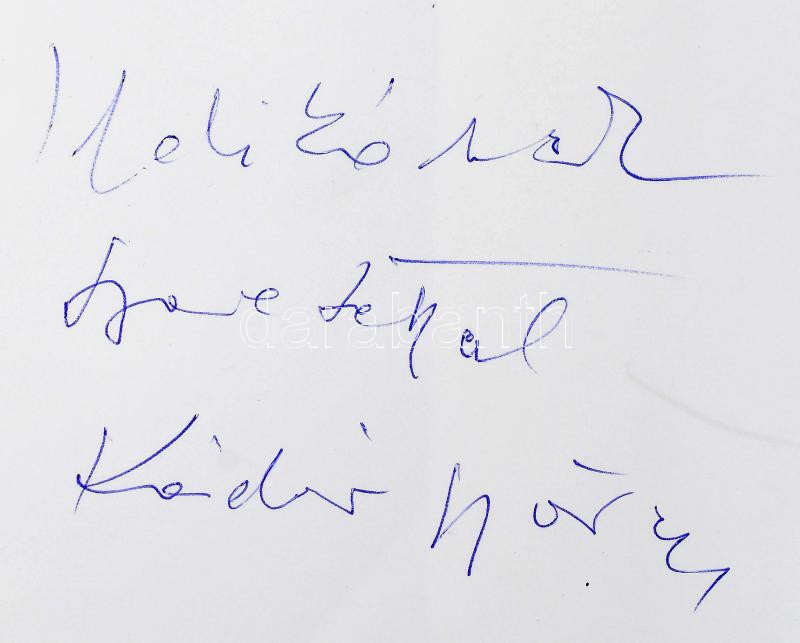 Melikónak
szeretettel
Kádár György
darabanth